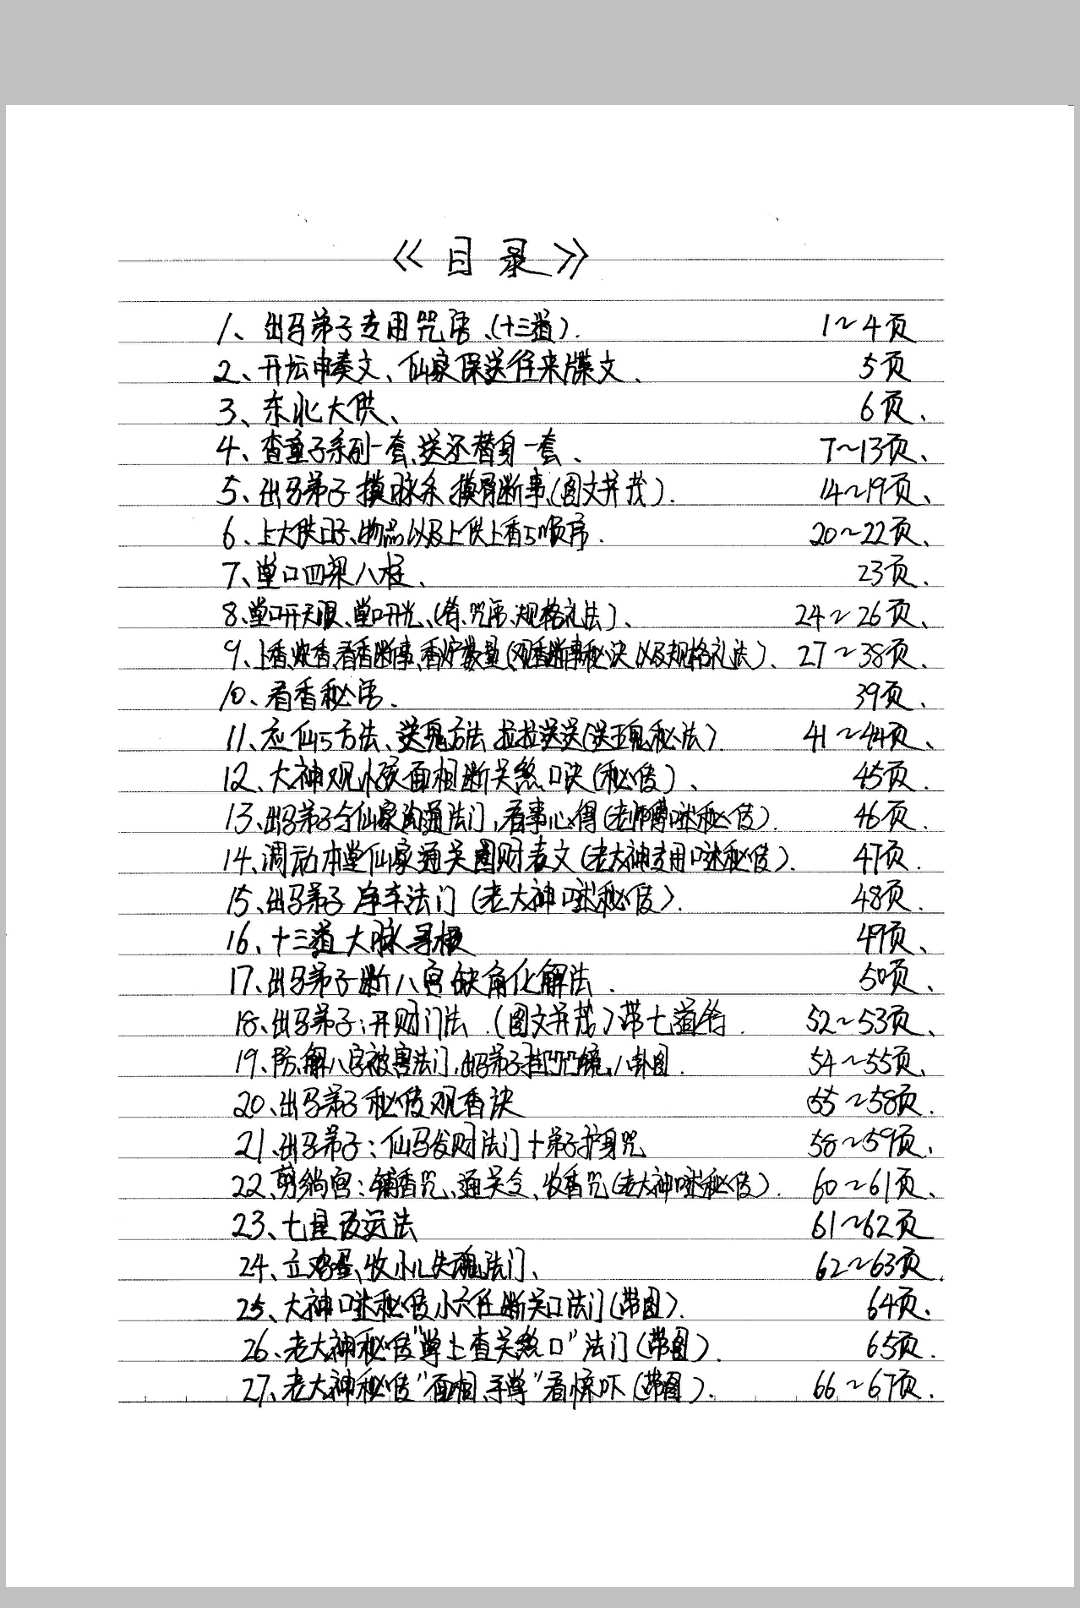 《目录》
1、出马弟子专用咒语、(十三道). 1~4页
2、开坛申奏文、仙家保送往来牒文、 5页
3、东北大供、 6页、
4、查童子系列一套、送还替身一套、 7~13页、
5、出马弟子摸脉系、摸骨断事、(图文并茂). 14~19页、
6、上大供日子、物品以及上供上香5顺序. 20~22页、
7、堂口四梁八柱、 23页.
8、堂口开天眼、堂口开光、(符、咒语、规格礼法)、 24~26页、
9、上香、烧香、看香断事、香炉数量(观香断事秘决以及规格礼法)、 27~38页、
10、看香秘语. 39页.
11、应仙5方法、送鬼方法、拉拉送送(送鬼秘法). 41~44页、
12、大神观小孩面相断关煞口决(秘传)、 45页.
13、出马弟子与仙家沟通法门,看事心得(老师傅口述秘传). 46页.
14、调动本堂仙家通关图财表文(老大神专用口述秘传). 47页.
15、出马弟子净车法门(老大神口述秘传). 48页.
16、十三道大脉寻根 49页、
17、出马弟子断八宫缺角化解法. 50页、
18、出马弟子:开财门法.(图文并茂)带七道符. 52~53页、
19、防、解八字被害法门、出马弟子挂咒镜,八卦图. 54~55页、
20、出马弟子秘传观香决 55~58页.
21、出马弟子:仙马发财法门十弟子护身咒 58~59页、
22、剪绱宫:铺香咒、通关令、收香咒(老大神口述秘传). 60~61页、
23、七星改运法 61~62页
24、立鸡蛋、收小儿失魂法门、 62~63页
25、大神口述秘传小六任断关口法门(带图). 64页.
26、老大神秘传"掌上查关煞口"法门(带图). 65页.
27、老大神秘传"面相、手掌"看惊吓(带图). 66~67页.